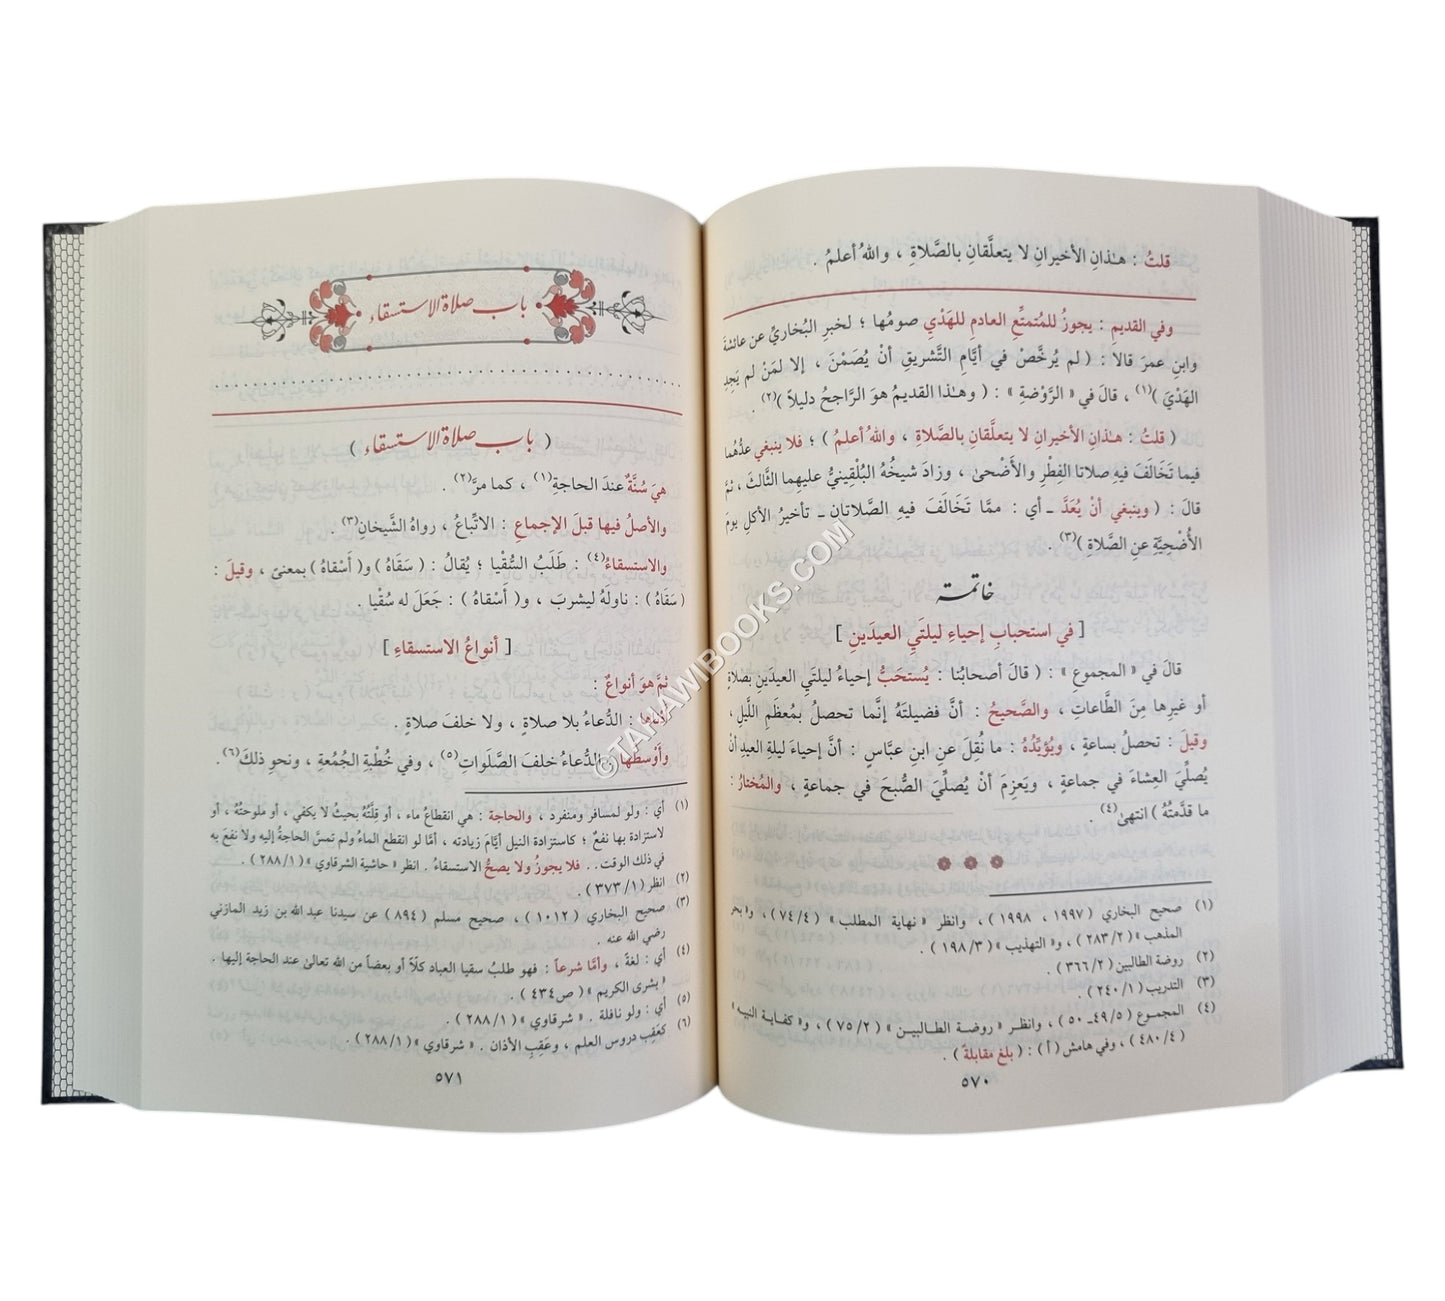 قلتُ : هـٰذانِ الأخيرانِ لا يتعلَّقانِ بالصَّلاةِ ، واللهُ أعلمُ .
وفي القديمِ : يجوزُ للمُتمتِّعِ العادمِ للهَدْيِ صومُها ؛ لخبرِ البُخاريِّ عن عائشةَ
وابنِ عمرَ قالا : ( لم يُرخَّصْ في أيَّامِ التَّشريقِ أنْ يُصَمْنَ ، إلا لمَنْ لم يَجِدِ
الهَدْيَ )(١) ، قالَ في « الرَّوْضةِ » : ( وهـٰذا القديمُ هوَ الرَّاجحُ دليلاً )(٢) .
( قلتُ : هـٰذانِ الأخيرانِ لا يتعلَّقانِ بالصَّلاةِ ، واللهُ أعلمُ ) ؛ فلا ينبغي عدُّهُما
فيما تَخَالَفَ فيهِ صلاتا الفِطْرِ والأَضْحىٰ ، وزادَ شيخُهُ البُلْقِينيُّ عليهِما الثَّالثَ ، ثمَّ
قالَ : ( وينبغي أنْ يُعَدَّ ـ أي : ممَّا تَخَالَفَ فيهِ الصَّلاتانِ ـ تأخيرُ الأكلِ يومَ
الأُضْحِيَّةِ عنِ الصَّلاةِ )(٣) .
خاتمة
[ في استحبابِ إحياءِ ليلتَيِ العيدَينِ ]
قالَ في « المجموعِ » : ( قالَ أصحابُنا : يُستحَبُّ إحياءُ ليلتَيِ العيدَينِ بصلاةٍ
أو غيرِها مِنَ الطَّاعاتِ ، والصَّحيحُ : أنَّ فضيلتَهُ إنَّما تحصلُ بمُعظَمِ اللَّيلِ ،
وقيلَ : تحصلُ بساعةٍ ، ويُؤيِّدُهُ : ما نُقِلَ عنِ ابنِ عبَّاسٍ : أنَّ إحياءَ ليلةِ العيدِ أنْ
يُصلِّيَ العِشاءَ في جماعةٍ ، ويَعزِمَ أنْ يُصلِّيَ الصُّبحَ في جماعةٍ ، والمُختارُ :
ما قدَّمتُهُ ) انتهىٰ(٤) .
(١) صحيح البخاري ( ١٩٩٧ ، ١٩٩٨ ) ، وانظر « نهاية المطلب » ( ٧٤/٤ ) ، و« بحر
المذهب » ( ٢٨٣/٢ ) ، و« التهذيب » ( ١٩٨/٣ ) .
(٢) روضة الطالبين ( ٣٦٦/٢ ) .
(٣) التدريب ( ٢٤٠/١ ) .
(٤) المجموع ( ٤٩/٥ـ ٥٠ ) ، وانظر « روضة الطالبين » ( ٧٥/٢ ) ، و« كفاية النبيه »
( ٤٨٠/٤ ) ، وفي هامش ( أ ) : ( بلغ مقابلة ) .
٥٧٠
باب صلاة الاستسقاء
( باب صلاة الاستسقاء )
هيَ سُنَّةٌ عندَ الحاجةِ(١) ، كما مرَّ(٢) .
والأصلُ فيها قبلَ الإجماعِ : الاتِّباعُ ، رواهُ الشَّيخانِ(٣) .
والاستسقاءُ(٤) : طَلَبُ السُّقْيا ؛ يُقالُ : ( سَقَاهُ ) و( أَسْقاهُ ) بمعنىً ، وقيلَ :
( سَقَاهُ ) : ناولَهُ ليشربَ ، و( أَسْقاهُ ) : جَعَلَ له سُقْيا .
[ أنواعُ الاستسقاءِ ]
ثمَّ هوَ أنواعٌ :
أدْناها : الدُّعاءُ بلا صلاةٍ ، ولا خلفَ صلاةٍ .
وأَوْسطُها : الدُّعاءُ خلفَ الصَّلَواتِ(٥) ، وفي خُطْبةِ الجُمُعةِ ، ونحوِ ذلكَ(٦) .
(١) أي : ولو لمسافر ومنفرد ، والحاجة : هي انقطاعُ ماء ، أو قِلَّتُهُ بحيثُ لا يكفي ، أو ملوحتُهُ ، أو
لاستزادة بها نفعٌ ؛ كاستزادة النيل أيَّامَ زيادته ، أمَّا لو انقطع الماءُ ولم تمسَّ الحاجةُ إليه ولا نفعَ به
في ذلك الوقت . . فلا يجوزُ ولا يصحُّ الاستسقاءُ . انظر « حاشية الشرقاوي » ( ٢٨٨/١ ) .
(٢) انظر ( ٣٧٣/١ ) .
(٣) صحيح البخاري ( ١٠١٢ ) ، صحيح مسلم ( ٨٩٤ ) عن سيدنا عبد الله بن زيد المازني
رضي الله عنه .
(٤) أي : لغةً ، وأمَّا شرعاً : فهو طلبُ سقيا العباد كلّاً أو بعضاً من الله تعالىٰ عند الحاجة إليها .
« بشرى الكريم » ( ص٤٣٤ ) .
(٥) أي : ولو نافلة . « شرقاوي » ( ٢٨٨/١ ) .
(٦) كعَقِبِ دروس العلم ، وعَقِبِ الأذان . « شرقاوي » ( ٢٨٨/١ ) .
٥٧١
© TAHAWIBOOKS.COM